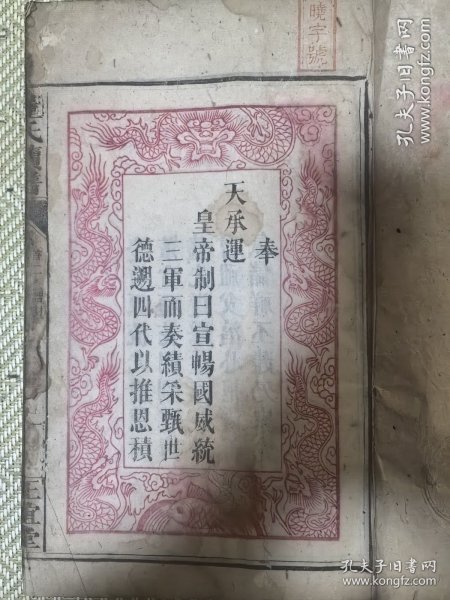 曉字號
奉
天承運
皇帝制曰宣暢國威統
三軍而奏績采甄世
德遡四代以推恩積
正宜堂
孔夫子旧书网
孔夫子旧书网
www.kongfz.com